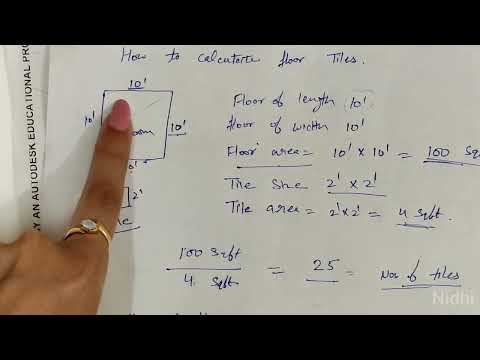 How to calculate floor Tiles.
10'
10'
10'
Floor of length 10'
floor of width 10'
Floor area = 10' x 10' = 100 Sq
Tile Size 2' x 2'
Tile area = 2' x 2' = 4 Sqft.
2'
100 Sqft
4 Sqft
= 25 = Nos of tiles
Nidhi
AY AN AUTODESK EDUCATIONAL PRO